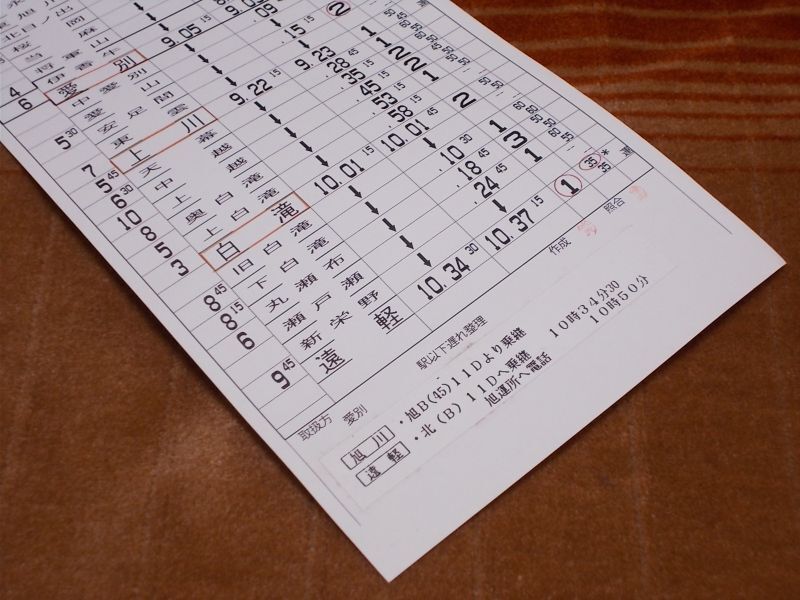 北日ノ出
桜岡
当麻
将軍山
伊香牛
4 愛別 9.05 15
6 中愛別
愛山
安足間
5 30 東雲
7 上川 9.22 15 9.23 1
5 45 天幕 28 45
6 30 中越 35 15
10 上越 45
8 奥白滝 53 45
5 上白滝 58
3 白滝 10.01 15 10.01 45 2
旧白滝
8 45 下白滝
8 15 丸瀬布 .10 30 1
6 瀬戸瀬 .18 45 3
新栄野 .24 45 1
9 45 遠軽 10.34 30 10.37 15 1 35
作成 照合
取扱方 愛別 駅以下遅れ整理
旭川 ・旭B(45)11Dより乗継 10時34分30
遠軽 ・北(B)11Dへ乗継 10時50分
旭運所へ電話